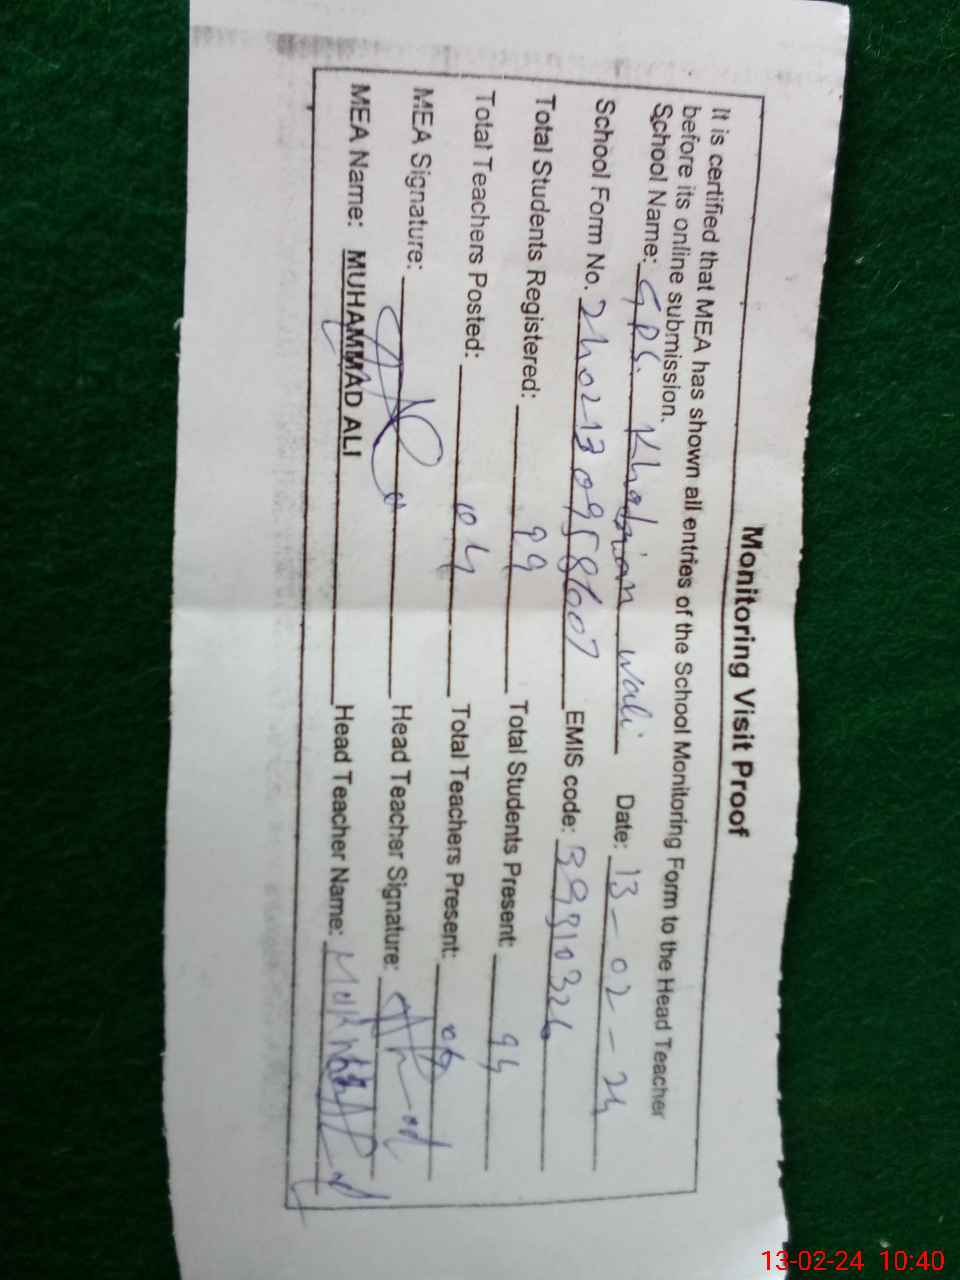 Monitoring Visit Proof
It is certified that MEA has shown all entries of the School Monitoring Form to the Head Teacher
before its online submission.
School Name: GPS. Wali Date: 13-02-24
School Form No. EMIS code:
Total Students Registered: 99 Total Students Present: 94
Total Teachers Posted: 04 Total Teachers Present:
MEA Signature: Head Teacher Signature:
MEA Name: MUHAMMAD ALI Head Teacher Name:
13-02-24 10:40